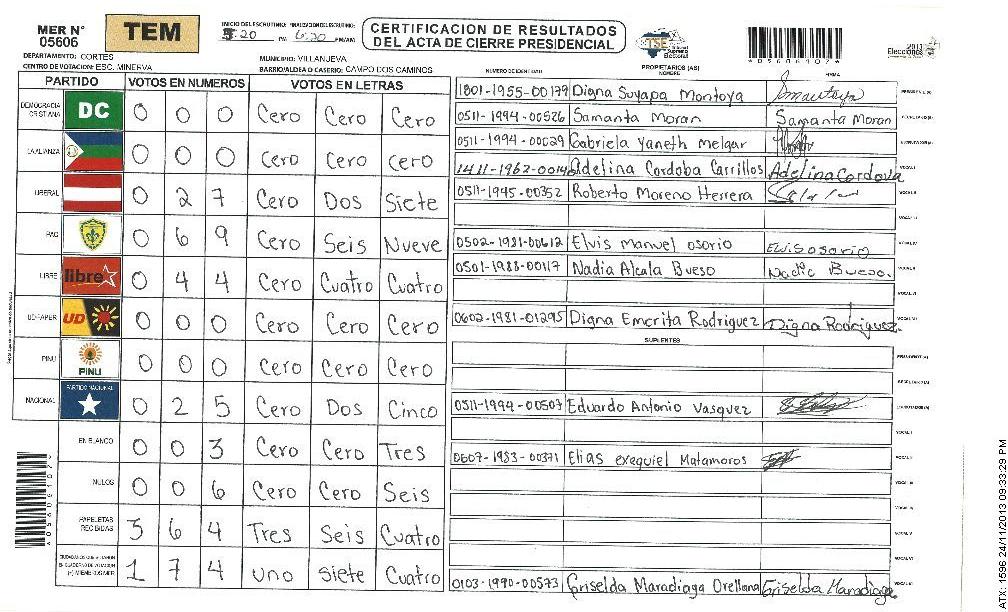 MER N° 05606
TEM
INICIO DEL ESCRUTINIO: FINALIZACION DEL ESCRUTINIO:
5:20 PM 6:30 PM/AM
CERTIFICACION DE RESULTADOS
DEL ACTA DE CIERRE PRESIDENCIAL
TSE Tribunal Supremo Electoral
*05606907*
2013
Elecciones
DEPARTAMENTO: CORTES
MUNICIPIO: VILLANUEVA
CENTRO DE VOTACION: ESC. MINERVA
BARRIO/ALDEA O CASERIO: CAMPO DOS CAMINOS
NUMERO DE IDENTIDAD PROPIETARIOS (AS) NOMBRE FIRMA
PARTIDO VOTOS EN NUMEROS VOTOS EN LETRAS
DEMOCRACIA CRISTIANA DC 0 0 0 Cero Cero Cero
LA ALIANZA 0 0 0 Cero Cero cero
LIBERAL 0 2 7 Cero Dos Siete
PAC 0 6 9 Cero Seis Nueve
LIBRE libre 0 4 4 Cero Cuatro Cuatro
UD-FAPER UD 0 0 0 Cero Cero Cero
PINU PINU 0 0 0 Cero Cero Cero
NACIONAL PARTIDO NACIONAL 0 2 5 Cero Dos Cinco
EN BLANCO 0 0 3 Cero Cero Tres
NULOS 0 0 6 Cero Cero Seis
PAPELETAS RECIBIDAS 3 6 4 Tres Seis Cuatro
CIUDADANOS QUE VOTARON EN CUADERNO DE VOTACION (+) MIEMBROS MER 1 7 4 uno Siete Cuatro
1801-1955-00179 Digna Suyapa Montoya Smontoya PRESIDENTE (A)
0511-1994-00526 Samanta Moran Samanta Moran SECRETARIO (A)
0511-1994-00029 Gabriela Yaneth Melgar ESCRUTADOR (A)
1411-1962-00146 Adelina Cordoba Carrillos Adelina Cordova VOCAL I
0511-1995-00352 Roberto Moreno Herrera VOCAL II
VOCAL III
0502-1981-00612 Elvis Manuel osorio Elvis osorio VOCAL IV
0501-1983-00117 Nadia Alcala Bueso Nadia Bueso. VOCAL V
VOCAL VI
0602-1981-01295 Digna Emerita Rodriguez Digna Rodriguez. VOCAL VII
SUPLENTES
PRESIDENTE (A)
SECRETARIO (A)
0511-1994-00503 Eduardo Antonio Vasquez ESCRUTADOR (A)
VOCAL I
0607-1983-00371 Elias exequiel Matamoros VOCAL II
VOCAL III
VOCAL IV
VOCAL V
VOCAL VI
0103-1990-00573 Griselda Maradiaga Orellana Griselda Maradiaga VOCAL VII
ATX: 1596 24/11/2013 09:33:29 PM